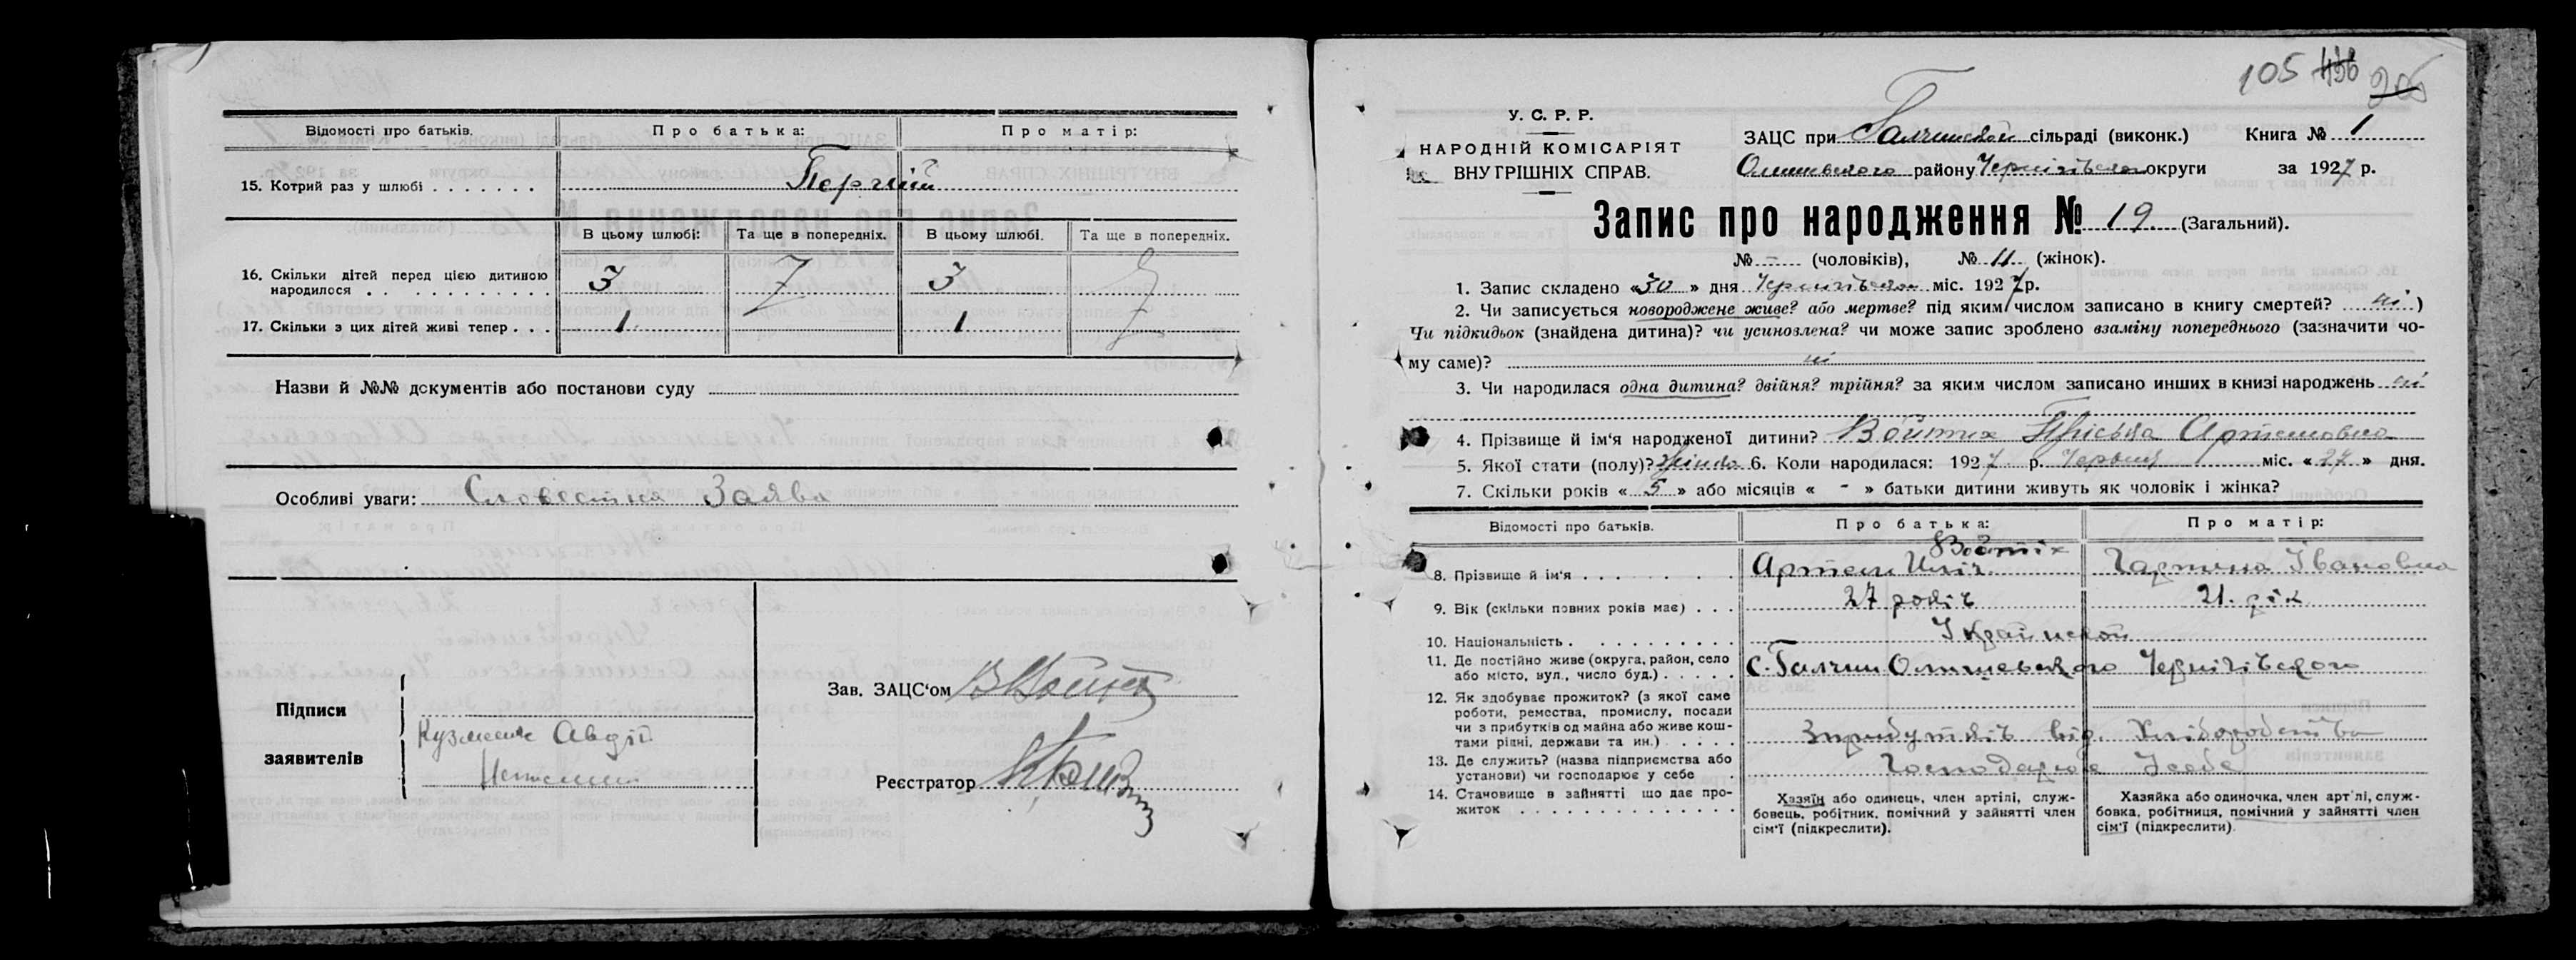 Відомості про батьків.
Про батька:
Про матір:
15. Котрий раз у шлюбі . . . . . . .
Перший
В цьому шлюбі:
Та ще в попередніх.
В цьому шлюбі.
Та ще в попередніх.
16. Скільки дітей перед цією дитиною
народилося . . . . . . . . . . .
3
3
17. Скільки з цих дітей живі тепер . . .
1
1
Назви й №№ документів або постанови суду
Особливі уваги: Словестна Заява
Підписи
заявителів
Авдій
Зав. ЗАЦС'ом
Реєстратор
105 436
У. С. Р. Р.
НАРОДНІЙ КОМІСАРІЯТ
ВНУТРІШНІХ СПРАВ.
ЗАЦС при Галчинской сільраді (виконк.) Книга № 1
Олишевського району Чернігівської округи за 1927 р.
Запис про народження № 19. (Загальний).
№ - (чоловіків), № 11 (жінок).
1. Запис складено «30» дня міс. 1927 р.
2. Чи записується новороджене живе? або мертве? під яким числом записано в книгу смертей? ні )
Чи підкидьок (знайдена дитина)? чи усиновлена? чи може запис зроблено взаміну попереднього (зазначити чо-
му саме)? ні
3. Чи народилася одна дитина? двійня? трійня? за яким числом записано инших в книзі народжень ні
4. Прізвище й ім'я народженої дитини? Войтих Пріська Артемовна
5. Якої стати (полу)? 6. Коли народилася: 1927 р. Червня міс. «27» дня.
7. Скільки років «5» або місяців «-» батьки дитини живуть як чоловік і жінка?
Відомості про батьків.
Про батька:
Про матір:
8. Прізвище й ім'я . . . . . . .
Войтіх
Артем Иліч
Івановна
9. Вік (скільки повних років має) . . .
27 років
21. рік
10. Національність . . . . . . . . . .
Українской
11. Де постійно живе (округа, район, село
або місто, вул., число буд.) . . . . .
с. Галчин Олишевського Чернігівского
12. Як здобуває прожиток? (з якої саме
роботи, ремества, промислу, посади
чи з прибутків од майна або живе кош-
тами рідні, держави та ин.) . . . . .
Зприбутків від. Хліборобства
13. Де служить? (назва підприємства або
установи) чи господарює у себе .
Господарює Усебе
14. Становище в зайнятті що дає про-
житок . . . . . . . . . . . . . .
Хазяїн або одинець, член артілі, служ-
бовець, робітник, помічний у зайнятті член
сім'ї (підкреслити).
Хазяйка або одиночка, член арт'лі, служ-
бовка, робітниця, помічний у зайнятті член
сім'ї (підкреслити).